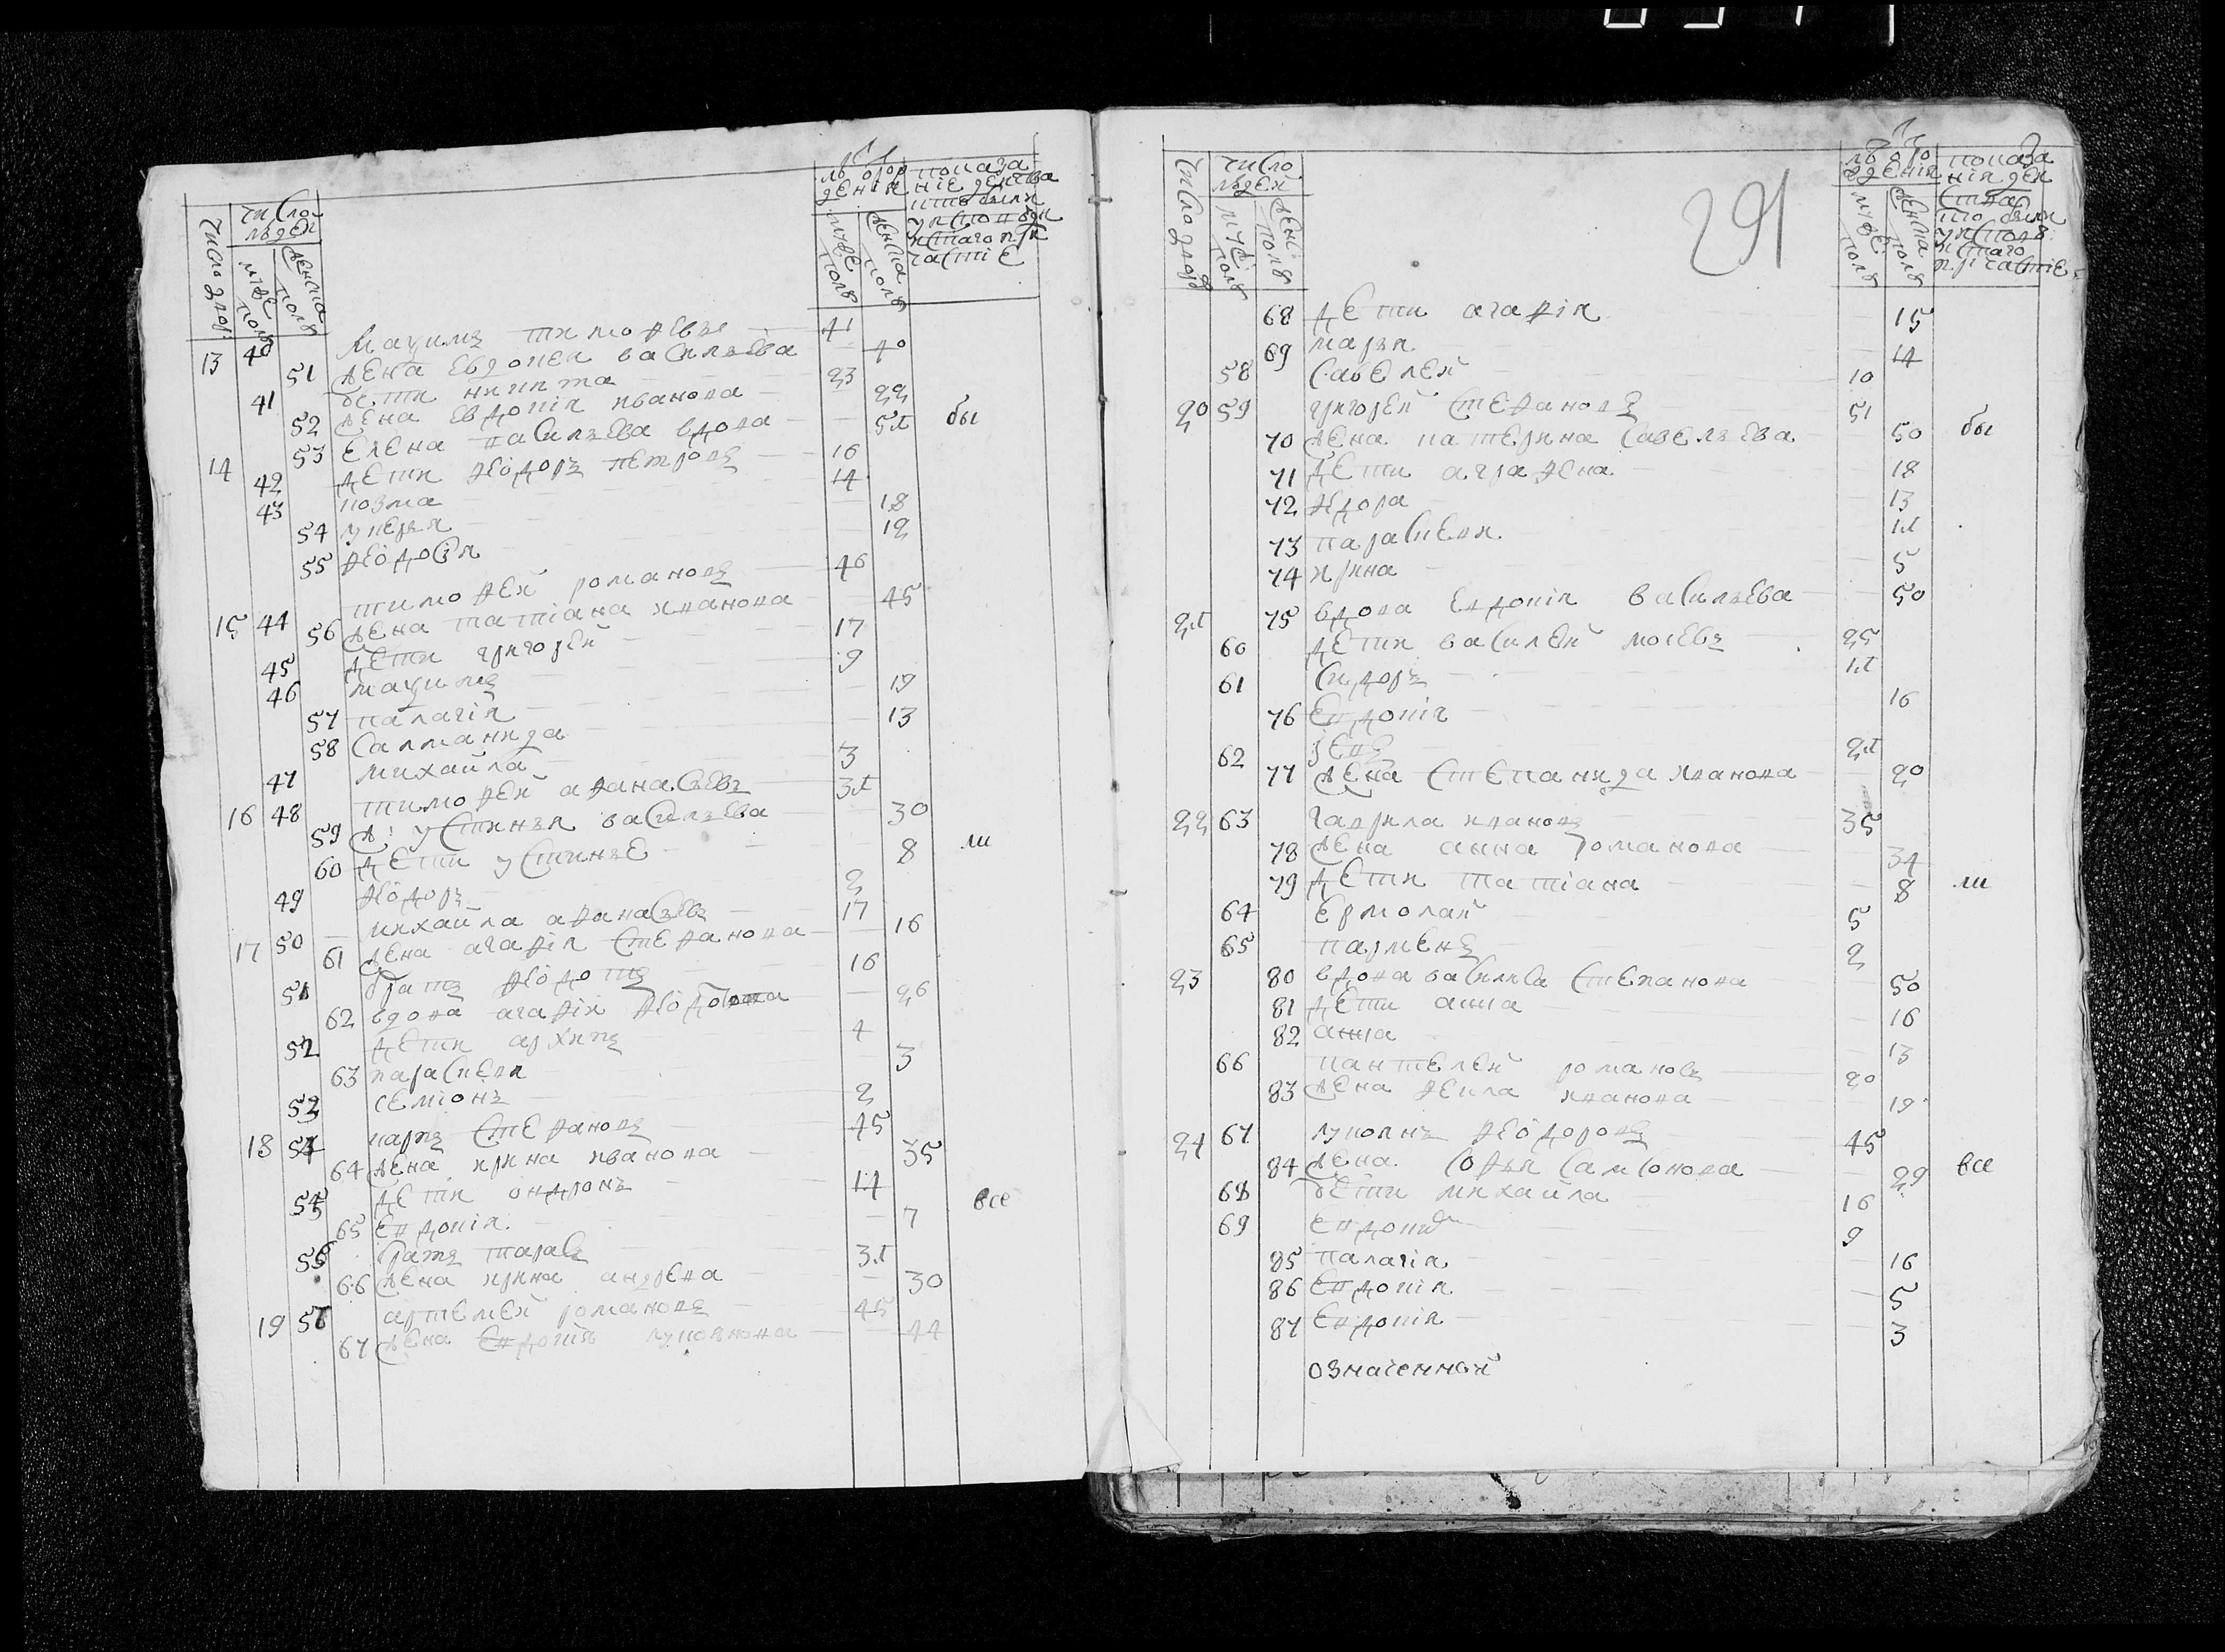 число двор: число людей мужеска полу женска полу лѣта от рождения мужеска полу женска полу показание действа кто были у исповеди и святаго причастия
13 40 Маѯимъ тимоѳѣевъ 41
51 жена Евдокея василъева 40
41 дети никита 23
52 жена евдокия иванова 22
53 Елена василъева вдова 51 бы
14 42 дети ѳеодоръ петровъ 16
43 козма 14
54 лукеръя 18
55 ѳеодосия 12
15 44 тимоѳей романовъ 46
56 жена татиана иванова 45
45 дети григорей 17
46 маѯимъ 9
57 палагия 19
58 Саламанида 13
47 михаила 3
16 48 тимоѳей аѳанасъевъ 31
59 ж: устинъя василъева 30
60 дети устинъе 8 ли
49 ѳеодоръ 2
17 50 михаила аѳанасъевъ 17
61 жена агаѳия стеѳанова 16
51 братъ ѳеодотъ 16
62 вдова агаѳия 26
52 дети архипъ 4
63 параскева 3
53 семионъ 2
18 54 карпъ Стеѳановъ 45
64 жена ирина иванова 35
55 дети ондронъ 14
65 Евдокия 7 все
56 братъ тарасъ 31
66 жена ирина андрева 30
19 57 артемей романовъ 45
67 жена Евдокия лукянова 44
291
число двор число людей муже: полу женс: полу лѣта рождения мужес: полу женска полу показания действа кто были у исповѣ: и святаго причастие
68 дети агаѳия 15
69 маръя 14
58 Савелей 10
20 59 григорей Стеѳановъ 51
70 жена катерина Савелъева 50 бы
71 дети аграѳена 18
72 ѳедора 13
73 параскевия 11
74 ирина 5
21 75 вдова Евдокия василъева 50
60 дети василей 25
61 Сидоръ 11
76 Евдокия 16
62 21
77 жена Степанида иванова 20
22 63 гаврила ивановъ 35
78 жена анна романова 34
79 дети татиана 8 ли
64 Ермолай 5
65 парменъ 2
23 80 вдова василиса Степанова 50
81 дети анна 16
82 анна 13
66 пантелей романовъ 20
83 жена ѳекла иванова 19
24 67 лукиянъ ѳеодоровъ 45
84 жена Софъя Самсонова 29 все
68 дети михаила 16
69 9
85 палагия 16
86 Евдокия 5
87 Евдокия 3
означенной